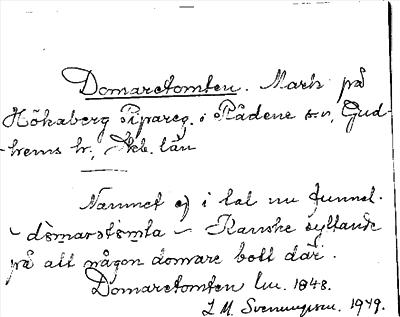 Domaretomten. Mark på
Hökaberg Pipareg. i Rådene sn, Gud-
hems hr, Skb. län
Namnet ej i tal nu funnet.
- Kanske syftande
på att någon domare bott där.
Domaretomten lm. 1848.
L M. Svenungsson. 1949.